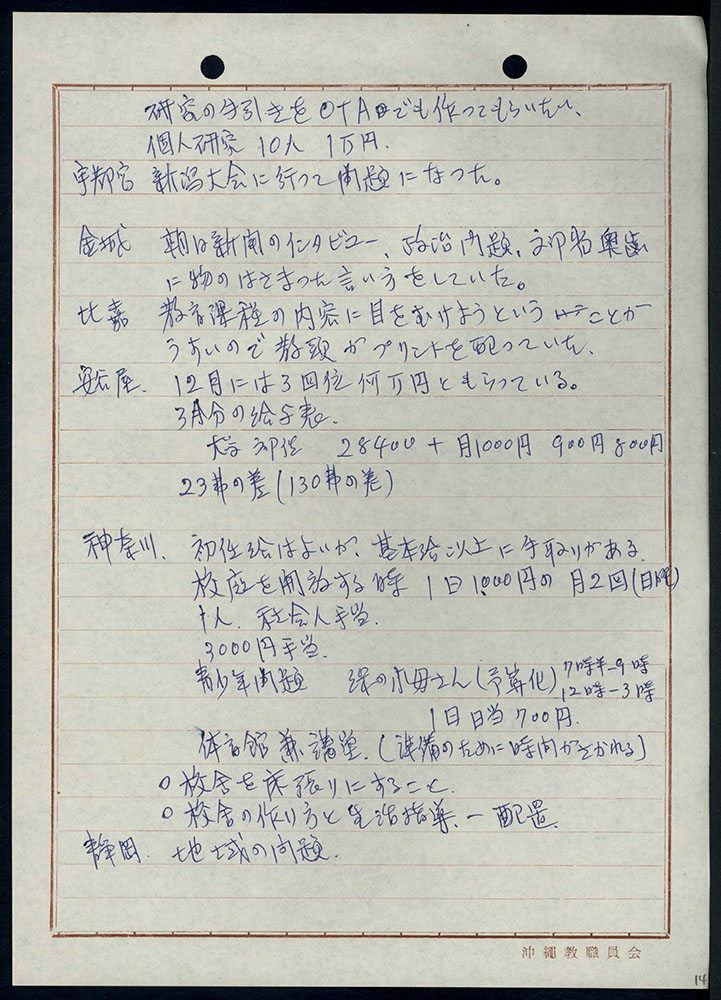 研究の手引きをOTAでも作ってもらいたい、
個人研究 10人 1万円.
宇都宮 新潟大会に行って問題になった。
金城 朝日新聞のインタビュー、政治問題、文部省奥歯
に物のはさまった言い方をしていた。
比嘉 教育課程の内容に目をむけようということが
うすいので教頭がプリントを配っていた、
安谷屋. 12月には3回位何万円ともらっている。
3月分の給与表.
大学初任 28400 + 月1000円 900円 800円
23弗の差(130弗の差)
神奈川. 初任給はよいが、基本給以上に手取りがある.
校庭を開放する時 1日1,000円の月2回(日曜)
1人. 社会人手当.
3000円手当.
青少年問題 緑の小母さん(予算化) 7時半-9時
12時-3時
1日日当700円.
体育館兼講堂.(準備のために時間がさかれる)
○校舎を床張りにすること.
○校舎の作り方と生活指導.-配置.
静岡. 地域の問題.
沖縄教職員会
14